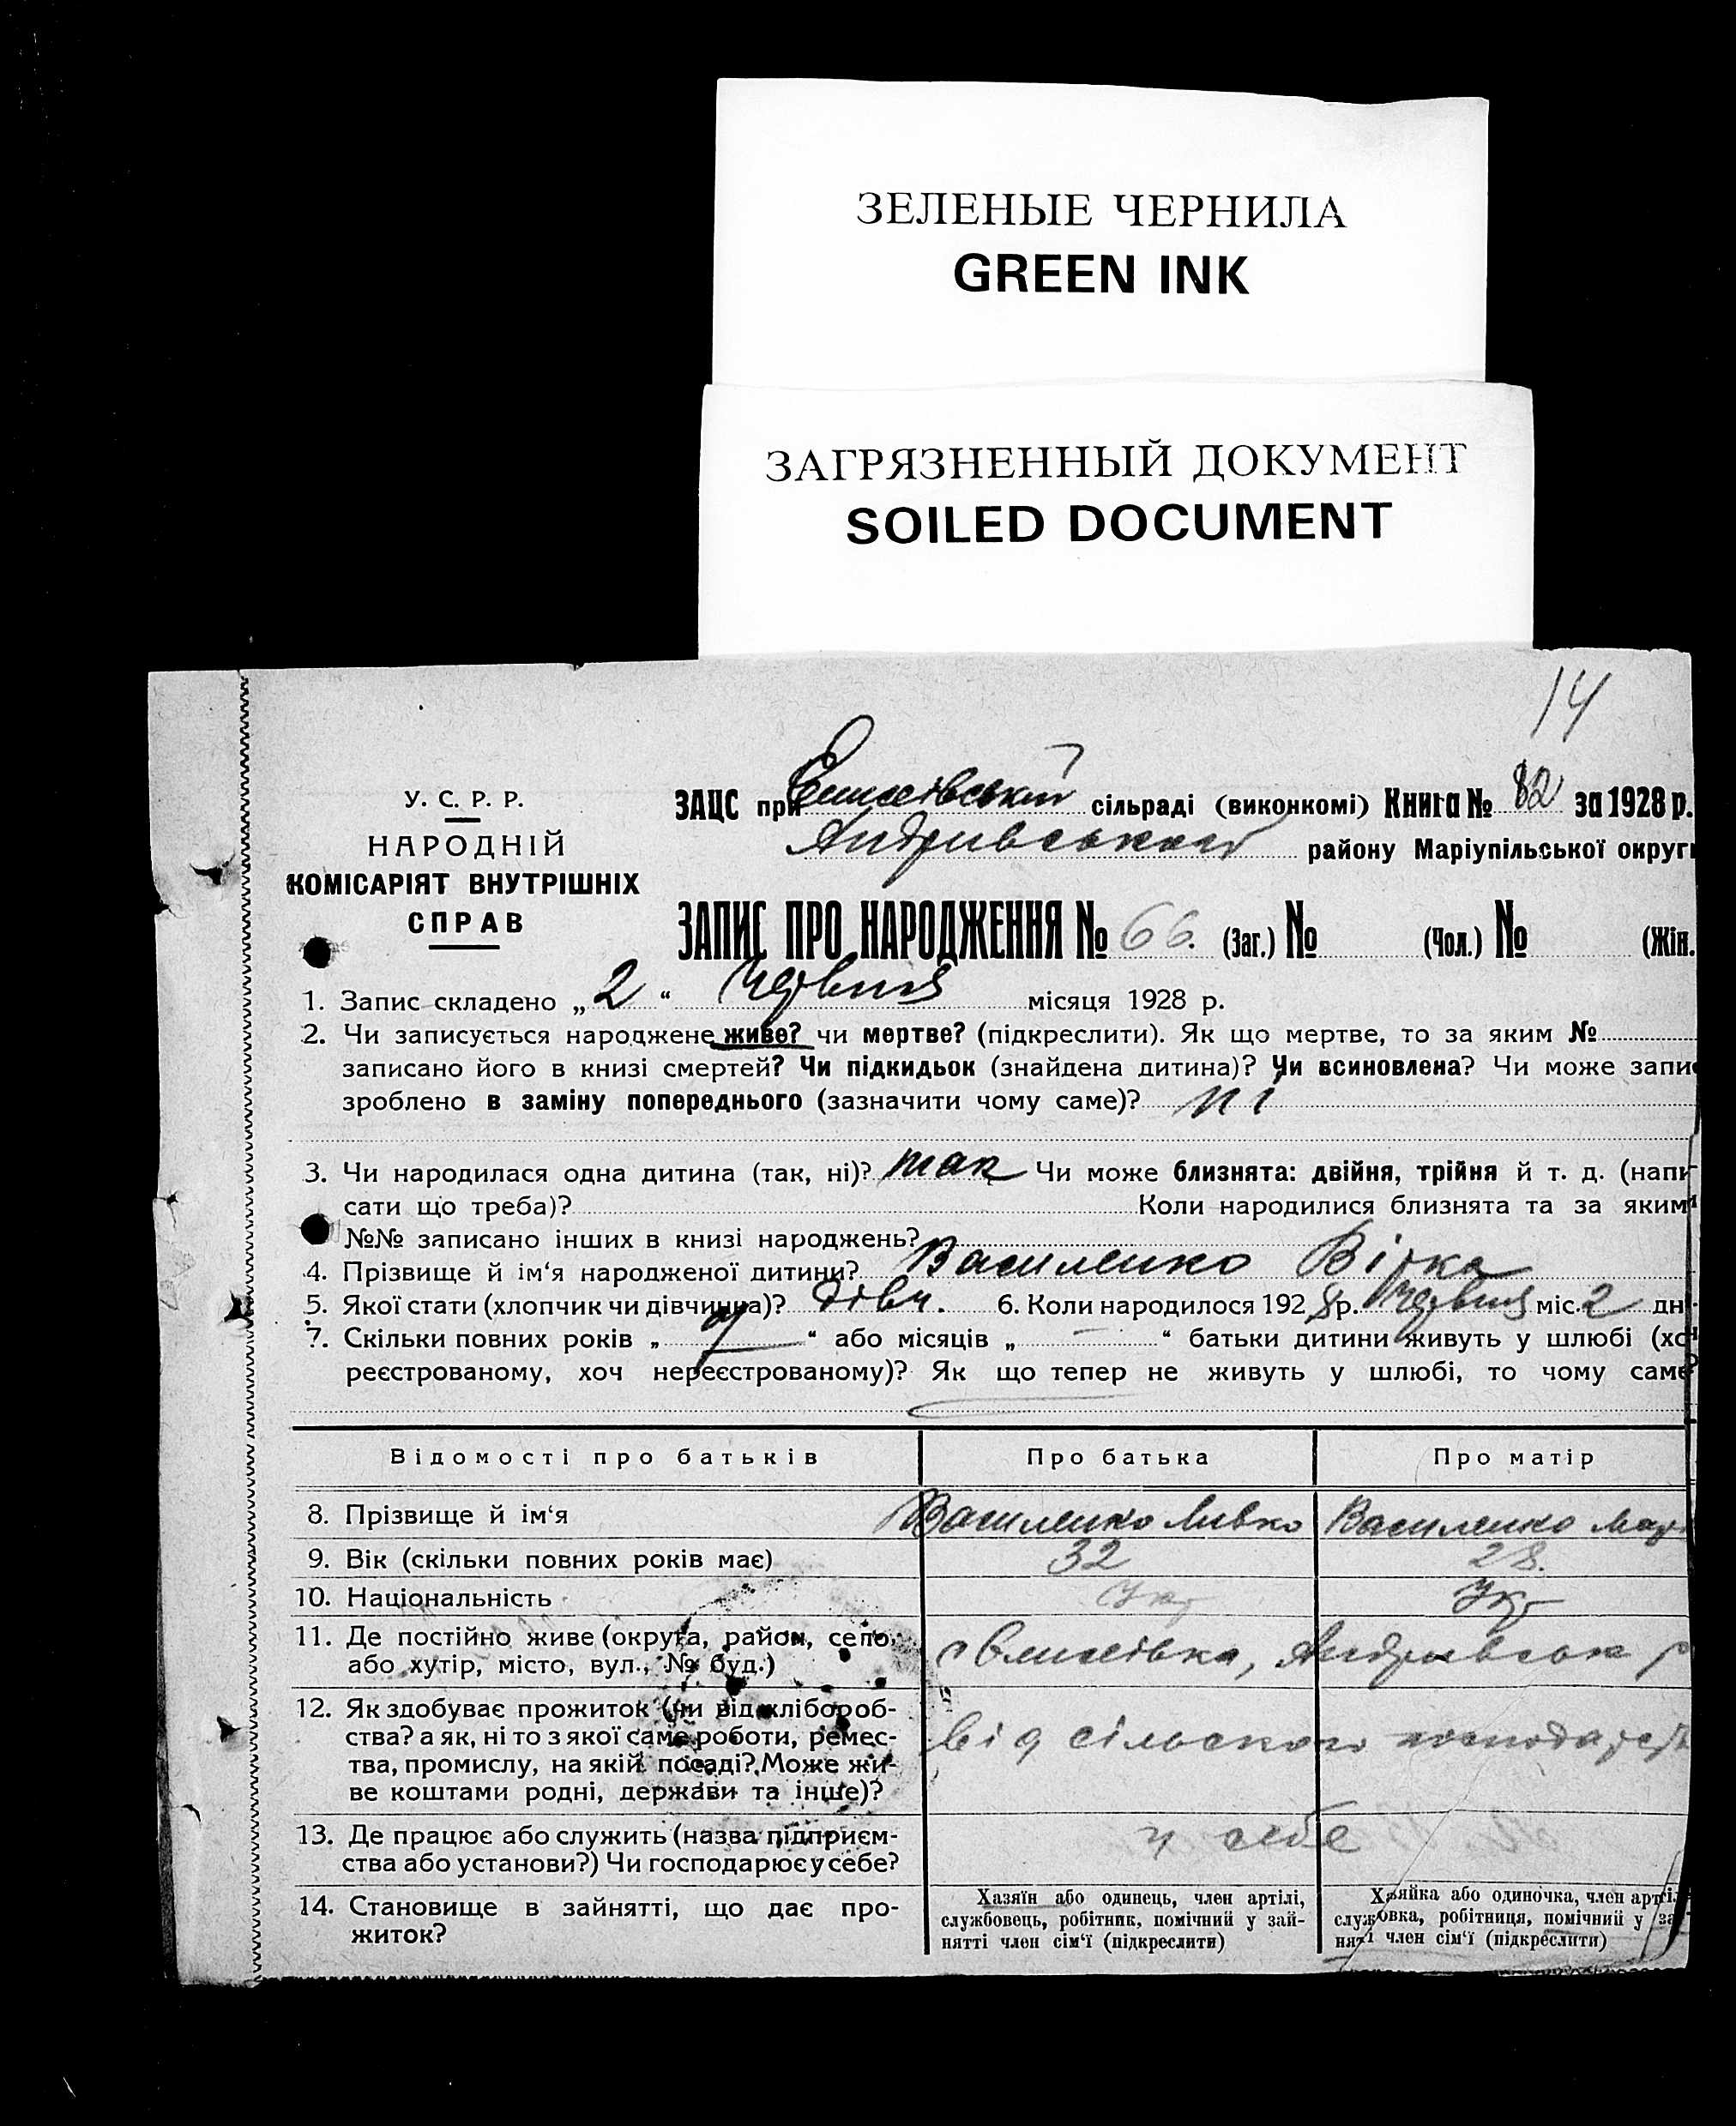 ЗЕЛЕНЫЕ ЧЕРНИЛА
GREEN INK
ЗАГРЯЗНЕННЫЙ ДОКУМЕНТ
SOILED DOCUMENT
14
У. С. Р. Р.
НАРОДНІЙ
КОМІСАРІЯТ ВНУТРІШНІХ
СПРАВ
ЗАЦС при сільраді (виконкомі) Книга № 82 за 1928 р.
Андрівського району Маріупільської округи
ЗАПИС ПРО НАРОДЖЕННЯ № 66. (Заг.) № (Чол.) № (Жін.
1. Запис складено „ 2 “ Червня місяця 1928 р.
2. Чи записується народжене живе? чи мертве? (підкреслити). Як що мертве, то за яким №
записано його в книзі смертей? Чи підкидьок (знайдена дитина)? Чи всиновлена? Чи може запис
зроблено в заміну попереднього (зазначити чому саме)? ні
3. Чи народилася одна дитина (так, ні)? так Чи може близнята: двійня, трійня й т. д. (напи-
сати що треба)? Коли народилися близнята та за якими
№№ записано інших в книзі народжень?
4. Прізвище й ім‘я народженої дитини? Василенко Вірка
5. Якої стати (хлопчик чи дівчинка)? дівч. 6. Коли народилося 192 8 р. Червня міс. 2 дня
7. Скільки повних років „ 7 “ або місяців „ — “ батьки дитини живуть у шлюбі (хоч
реєстрованому, хоч нереєстрованому)? Як що тепер не живуть у шлюбі, то чому саме?
Відомості про батьків Про батька Про матір
8. Прізвище й ім‘я Василенко Левко Василенко
9. Вік (скільки повних років має) 32 28.
10. Національність Укр Укр
11. Де постійно живе (округа, район, село,
або хутір, місто, вул., № буд.) Андрівськ р
12. Як здобуває прожиток (чи від хлібороб-
ства? а як, ні то з якої саме роботи, ремес-
тва, промислу, на якій посаді? Може жи-
ве коштами родні, держави та інше)? від сільского господарств
13. Де працює або служить (назва підприєм-
ства або установи?) Чи господарює у себе? у себе
14. Становище в зайнятті, що дає про-
житок?
Хазяїн або одинець, член артілі,
службовець, робітник, помічний у зай-
нятті член сім‘ї (підкреслити)
Хазяйка або одиночка, член артілі
службовка, робітниця, помічний у за
нятті член сім‘ї (підкреслити)